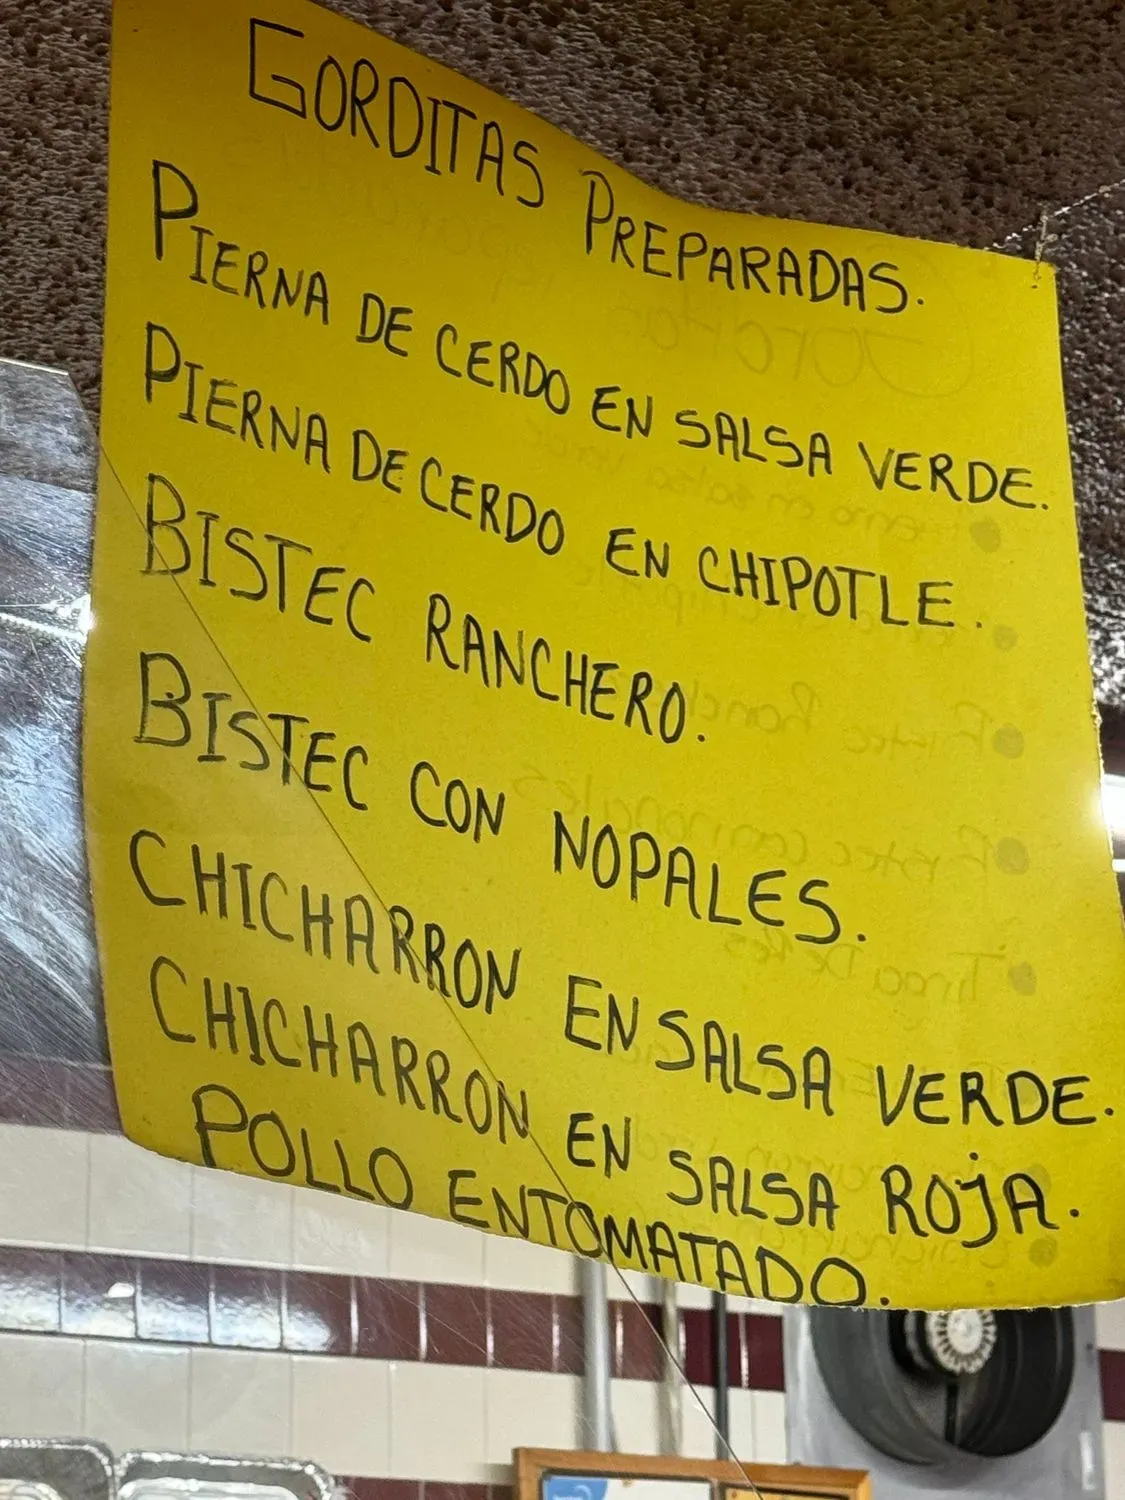 GORDITAS PREPARADAS.
PIERNA DE CERDO EN SALSA VERDE.
PIERNA DE CERDO EN CHIPOTLE.
BISTEC RANCHERO.
BISTEC CON NOPALES.
CHICHARRON EN SALSA VERDE.
CHICHARRON EN SALSA ROJA.
POLLO ENTOMATADO.